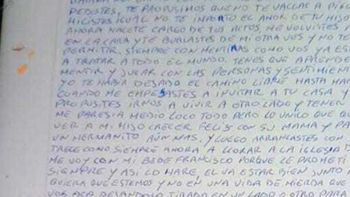 PEDISTES, TE PROPUSIMOS QUE NO TE VALLAS A
HICISTES IGUAL NO TE IMPORTO EL AMOR DE TU HIJO
AHORA HACETE CARGO DE TUS ACTOS ME VOLVISTES A
EN LA CARA Y TE BURLASTES DE MI OTRA VES Y NO TE
PERMITIR, SIEMPRE CON MENTIRAS COMO VOS YA ES
A TRATAR A TODO EL MUNDO. TENES QUE APRENDE
MENTIR Y JUGAR CON LAS PERSONAS Y SENTIMIEN
YO TE HABIA DEJADO EL CAMINO LIBRE HASTA
CUANDO ME EMPESASTES A INVITAR A TU CASA Y
PROPUSISTES IRNOS A VIVIR A OTRO LADO Y TENER
ME PARESIA MEDIO LOCO TODO PERO LO UNICO QUE Q
VER A MI HIJO CRECER FELIS CON SU MAMA Y PA
UN HERMANITO AUN MAS. Y LUEGO ARRANCASTES CON
TARTE COMO SIEMPRE AHORA A LLORAR A LA IGLESIA
ME VOY CON MI BEBE FRANCISCO PORQUE LE PROMETI
SIEMPRE Y ASI LO HARE, EL VA ESTAR BIEN JUNTO A
QUIERA QUE ESTEMOS Y NO EN UNA VIDA DE MIERDA QUE
VOS ACA DEJANDOLO TIRADO EN UN LADO O OTRO PARA